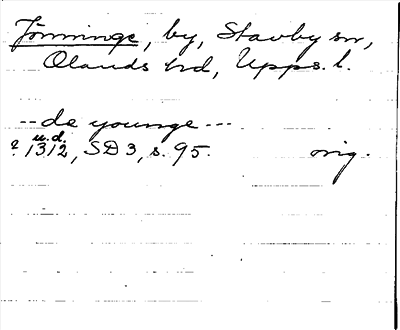 Jömminge, by, Stavby sn,
Olands hd, Upps. l.
-- de younge ---
u.d.
? 1312, SD 3, s. 95. orig.